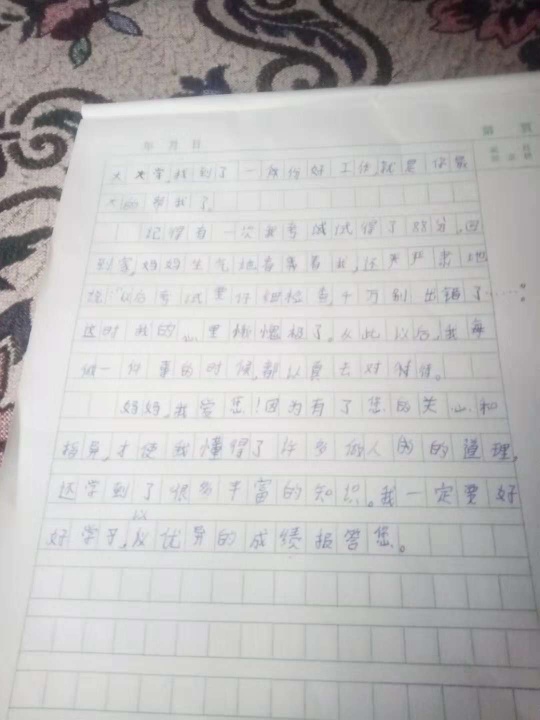 年 月 日
大大学,我到了一份份好工作,就是你最
大的帮我了。
记得有一次我考试试得了88分,回
到家,妈妈生气地看着看我,还严严求地
说“以后考试要仔细检查,千万别出错了……”。
这时我的心里惭愧极了。从此以后,我每
做一件事的时候,都认真去对待待。
妈妈,我爱您!因为有了您的关心和
指导,才使我懂得了许多做人的道理,
还学到了很多丰富的知识。我一定要好
好学习,以优异的成绩报答您。